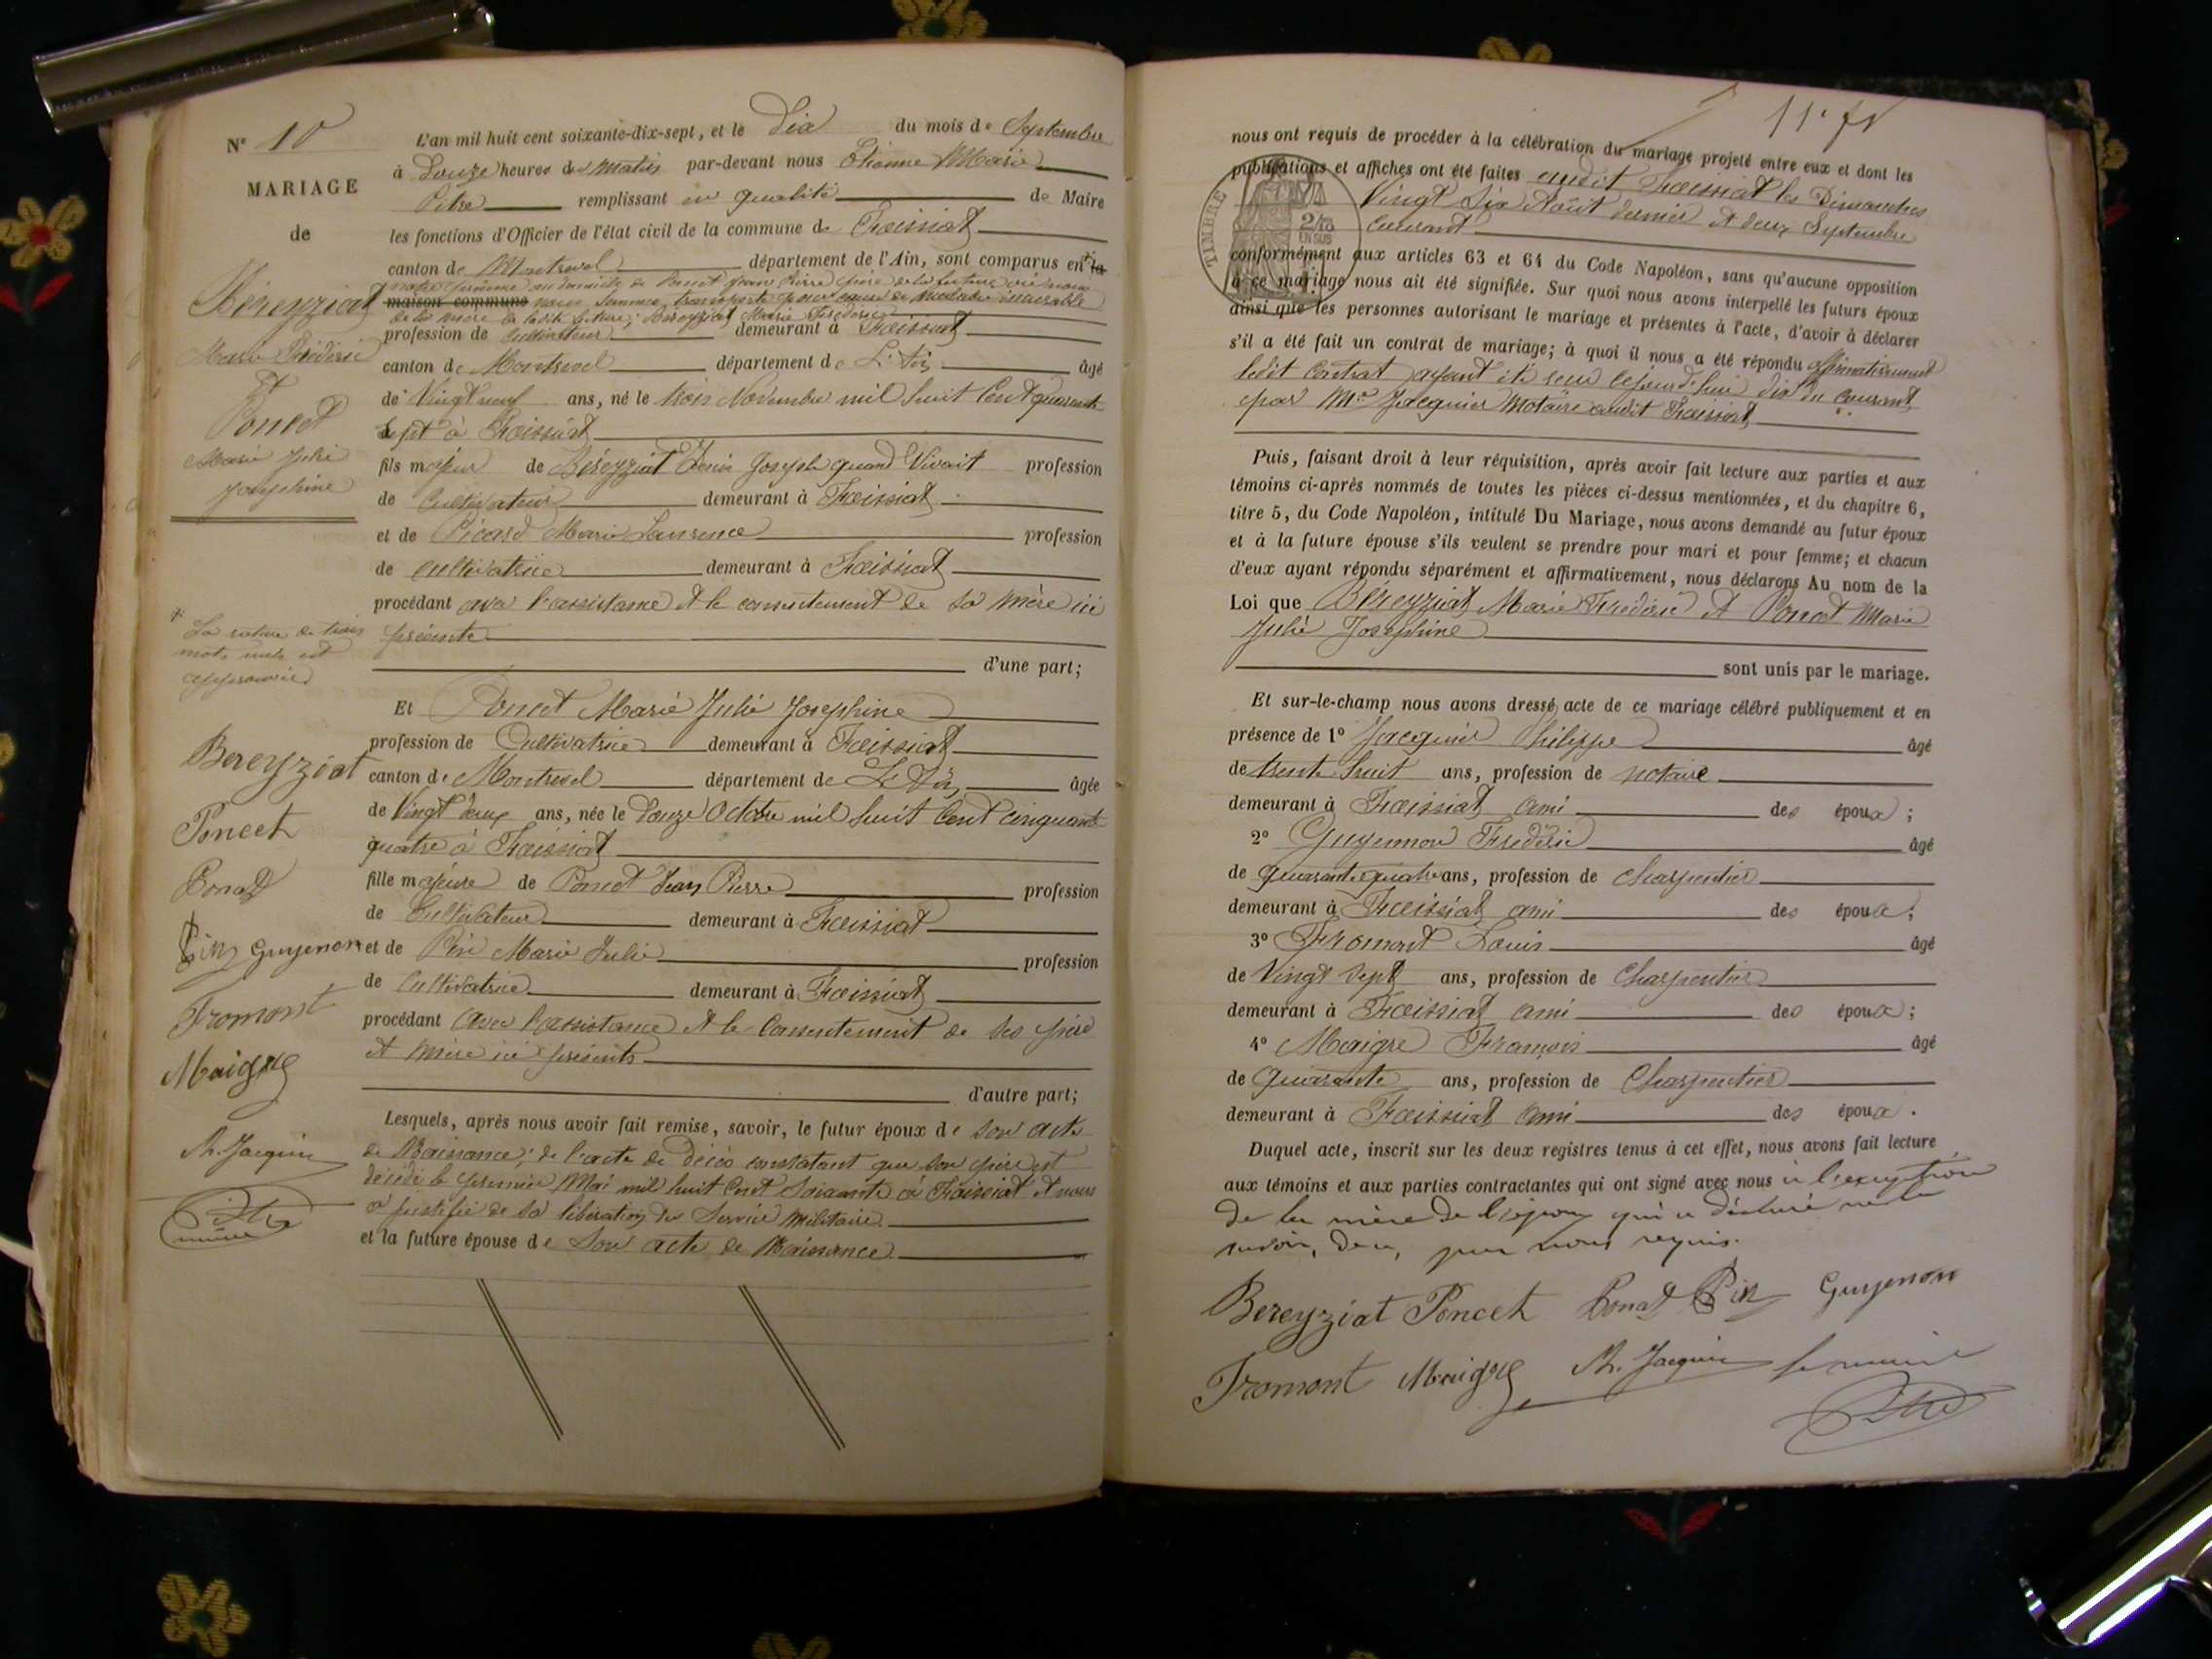 N° 10
MARIAGE
de
Béreyziat
Marie Frédéric
Et
Poncet
Marie Julie
Josephine
La rature de trois
mots nuls est
approuvée
Bereyziat
Poncet
Ponat
Pin Guyenon
Fromont
Maigre
Ph. Jacquier
Pitre
maire
L'an mil huit cent soixante-dix-sept, et le Dix du mois de Septembre
à Douze heures du Matin par-devant nous Etienne Marie
Pitre remplissant en qualité de Maire
les fonctions d'Officier de l'état civil de la commune de Foissiat
canton de Montrevel département de l'Ain, sont comparus en la
au domicile de Poncet Jean Pierre père de la future où nous
maison commune nous sommes transporté pour cause de maladie
de la mère de ladite future; Béreyziat Marie Frédéric
profession de Cultivateur demeurant à Foissiat
canton de Montrevel département de L'Ain âgé
de Vingt neuf ans, né le trois Novembre mil huit Cent quarante
sept à Foissiat
fils majeur de Béreyziat Denis Joseph quand Vivait profession
de Cultivateur demeurant à Foissiat
et de Picard Marie Laurence profession
de Cultivatrice demeurant à Foissiat
procédant avec l'assistance et le consentement de sa mère ici
présente
d'une part;
Et Poncet Marie Julie Josephine
profession de Cultivatrice demeurant à Foissiat
canton de Montrevel département de L'Ain âgée
de Vingt deux ans, née le Douze Octobre mil huit Cent cinquante
quatre à Foissiat
fille majeure de Poncet Jean Pierre profession
de Cultivateur demeurant à Foissiat
et de Pin Marie Julie profession
de Cultivatrice demeurant à Foissiat
procédant avec l'assistance et le Consentement de ses père
et mère ici présents
d'autre part;
Lesquels, après nous avoir fait remise, savoir, le futur époux de son acte
de Naissance; de l'acte de décès constatant que son père est
décédé le premier Mai mil huit Cent Soixante à Foissiat et nous
a justifié de sa libération du Service Militaire
et la future épouse de Son acte de Naissance
nous ont requis de procéder à la célébration du mariage projeté entre eux et dont les
publications et affiches ont été faites audit Foissiat les Dimanches
Vingt Six Août dernier et deux Septembre
Courant
TIMBRE
2/10
EN SUS
conformément aux articles 63 et 64 du Code Napoléon, sans qu'aucune opposition
à ce mariage nous ait été signifiée. Sur quoi nous avons interpellé les futurs époux
ainsi que les personnes autorisant le mariage et présentes à l'acte, d'avoir à déclarer
s'il a été fait un contrat de mariage; à quoi il nous a été répondu affirmativement
ledit Contrat ayant été reçu cejourd'hui dix du courant
par Me Jacquier Notaire audit Foissiat
Puis, faisant droit à leur réquisition, après avoir fait lecture aux parties et aux
témoins ci-après nommés de toutes les pièces ci-dessus mentionnées, et du chapitre 6,
titre 5, du Code Napoléon, intitulé Du Mariage, nous avons demandé au futur époux
et à la future épouse s'ils veulent se prendre pour mari et pour femme; et chacun
d'eux ayant répondu séparément et affirmativement, nous déclarons Au nom de la
Loi que Béreyziat Marie Frédéric et Poncet Marie
Julie Josephine
sont unis par le mariage.
Et sur-le-champ nous avons dressé acte de ce mariage célébré publiquement et en
présence de 1° Jacquier Philippe âgé
de trente huit ans, profession de notaire
demeurant à Foissiat ami des époux;
2° Guyennon Frédéric âgé
de Quarante quatre ans, profession de Charpentier
demeurant à Foissiat ami des époux;
3° Fromont Louis âgé
de Vingt sept ans, profession de Charpentier
demeurant à Foissiat ami des époux;
4° Maigre François âgé
de Quarante ans, profession de Charpentier
demeurant à Foissiat ami des époux.
Duquel acte, inscrit sur les deux registres tenus à cet effet, nous avons fait lecture
aux témoins et aux parties contractantes qui ont signé avec nous à l'exception
de la mère de l'époux qui a déclaré ne le
savoir, de ce, par nous requis.
Bereyziat Poncet Ponat Pin Guyenon
Fromont Maigre Ph. Jacquier le maire
Pitre